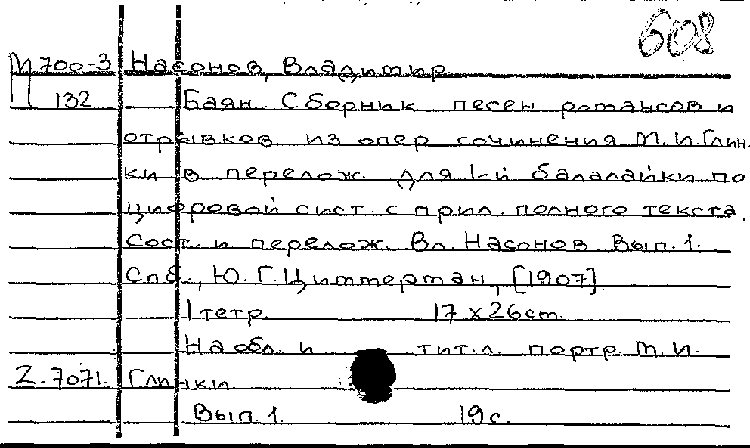 608
М 700-3 Насонов, Владимир
132 Баян. Сборник песен романсов и
отрывков из опер сочинения М.И.Глин-
ки в перелож. для 1-й балалайки по
цифровой сист. с прил. полного текста.
Сост. и перелож. Вл. Насонов. Вып. 1.
Спб., Ю.Г.Циммерман, [1907]
1 тетр. 17 x 26 cm.
На обл. и тит.л. портр. М.И.
2.7071. Глинки
Вып 1. 19 с.